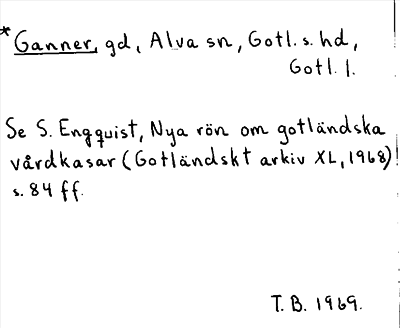 *Ganner, gd, Alva sn, Gotl. s. hd,
Gotl. l.
Se S. Engquist, Nya rön om gotländska
vårdkasar (Gotländskt arkiv XL, 1968)
s. 84 ff.
T. B. 1969.